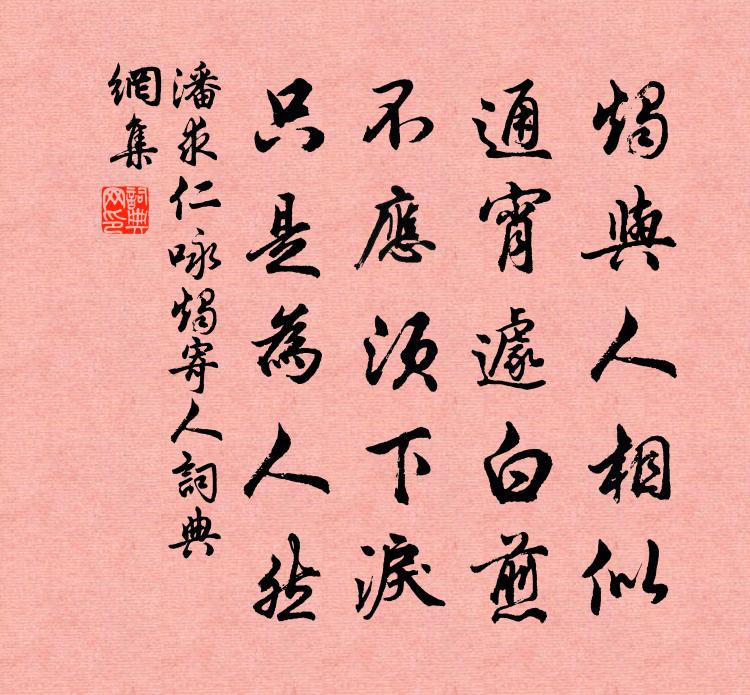 燭與人相似
通宵遽白煎
不應須下淚
只是為人然
潘求仁咏燭寄人詞典
網集
詞典
网印